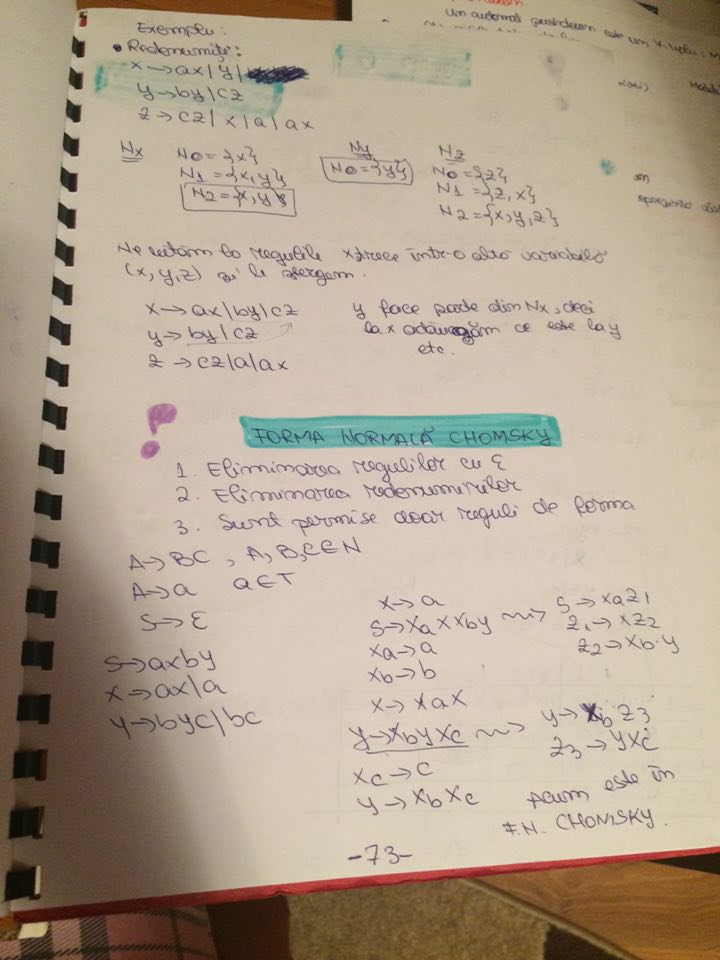 Un automat pushdown este un x uplu:
Exemplu:
• Redenumiţe:
x → ax | y |
y → by | cz
z → cz | x | a | ax
Nx
N0 = {x}
N1 = {x, y}
N2 = {x, y}
Ny
N0 = {y}
Nz
N0 = {z}
N1 = {z, x}
N2 = {x, y, z}
Ne uităm la regulile x trece într-o altă variabilă
(x, y, z) și le ștergem.
x → ax | by | cz
y → by | cz
z → cz | a | ax
y face parte din Nx, deci
la x adăugăm ce este la y
etc.
?
FORMA NORMALĂ CHOMSKY
1. Eliminarea regulilor cu ε
2. Eliminarea redenumirilor
3. Sunt permise doar reguli de forma
A → BC , A, B, C ∈ N
A → a a ∈ T
S → ε
S → axby
x → ax | a
y → byc | bc
x → a
S → Xa X Xb y ~~> S → Xa Z1
Z1 → X Z2
Z2 → Xb · y
Xa → a
Xb → b
X → Xa X
y → Xb y Xc ~~> y → Xb Z3
Z3 → y Xc
Xc → c
y → Xb Xc
Acum este în
F.N. CHOMSKY.
-73-